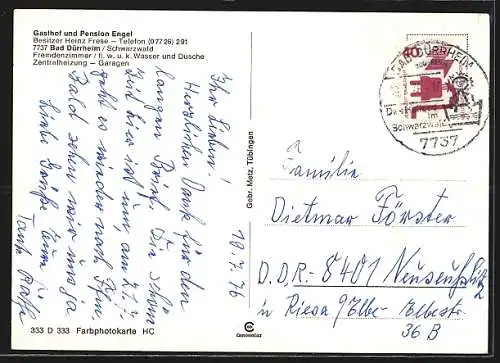 Gasthof und Pension Engel
Besitzer Heinz Frese – Telefon (07726) 291
7737 Bad Dürrheim / Schwarzwald
Fremdenzimmer / fl. w. u. k. Wasser und Dusche
Zentralheizung – Garagen
18.7.76
Ihr Lieben!
Herzlichen Dank für den
langen Brief. Die schöne
Zeit hier ist um, am 21.7.
geht es wieder nach
Bald sehen wir uns ja
Liebe Grüße Eure
Tante
Gebr. Metz, Tübingen
40
BAD DÜRRHEIM
im
Schwarzwald
7737
Familie
Dietmar Förster
D.D.R.- 8401 Neuseußlitz
ü. Riesa /Elbe- Elbestr.
36 B
333 D 333 Farbphotokarte HC